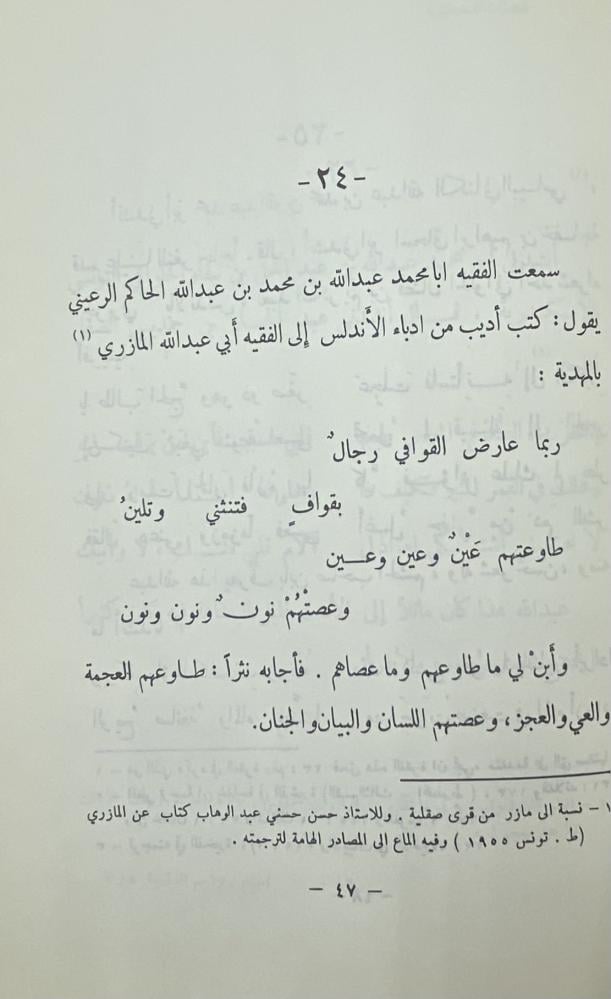 -٢٤-
سمعت الفقيه ابامحمد عبدالله بن محمد بن عبدالله الحاكم الرعيني
يقول: كتب أديب من ادباء الأندلس إلى الفقيه أبي عبدالله المازري (١)
بالمهدية :
ربما عارض القوافي رجالٌ
بقوافٍ فتنثني وتلينُ
طاوعتهم عَيْنٌ وعين وعــين
وعصتْهُمْ نونٌ ونون ونون
وأبنْ لي ما طاوعهم وما عصاهم . فأجابه نثراً : طـاوعهم العجمة
والعي والعجز، وعصتهم اللسان والبيان والجنان.
١ - نسبة الى مازر من قرى صقلية . وللاستاذ حسن حسني عبد الوهاب كتاب عن المازري
(ط . تونس ١٩٥٥ ) وفيه الماع الى المصادر الهامة لترجمته .
- ٤٧ -